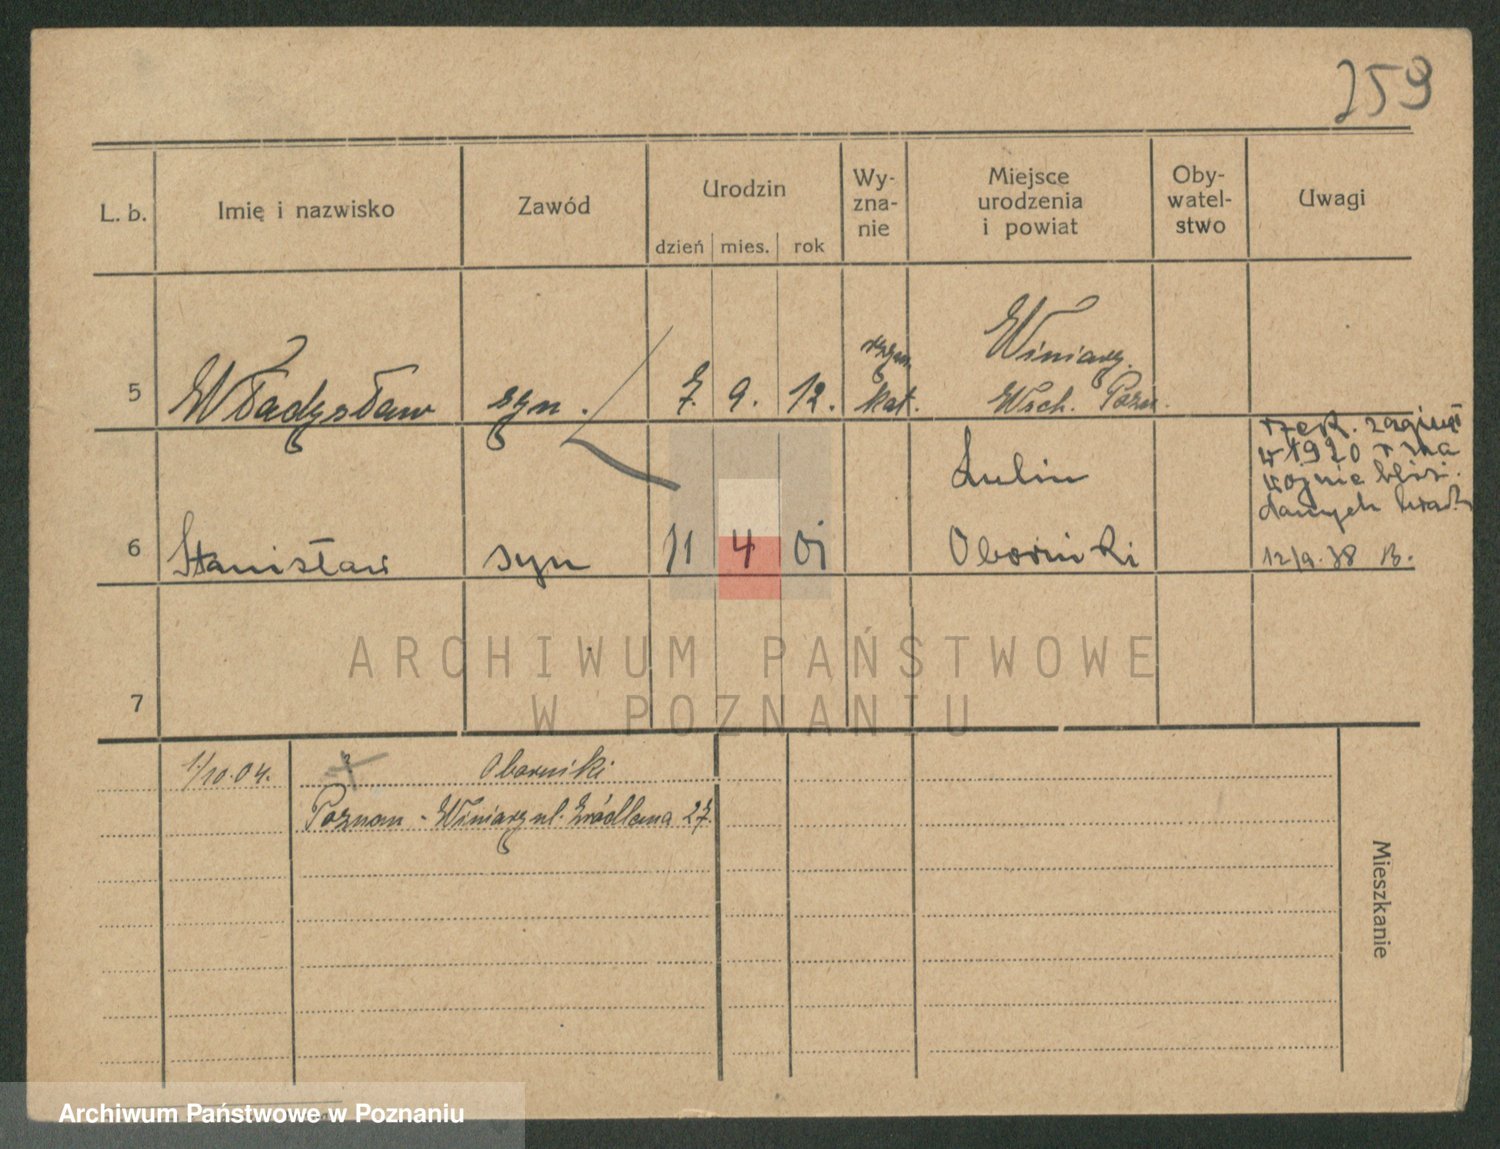 259
L. b.
Imię i nazwisko
Zawód
Urodzin
dzień mies. rok
Wy-
zna-
nie
Miejsce
urodzenia
i powiat
Oby-
watel-
stwo
Uwagi
5 Władysław syn. 7. 9. 12. rzym. kat. Winiary. Wsch. Pozn.
6 Stanisław syn 11 4 01 Lulin Oborniki
rzek. zaginął
w 1920 r na
wojnie bliż.
danych brak
12/9. 38 B.
7
1./10.04. Oborniki
Poznan - Winiary ul. Źródlana 27.
Mieszkanie
ARCHIWUM PAŃSTWOWE
W POZNANIU
Archiwum Państwowe w Poznaniu